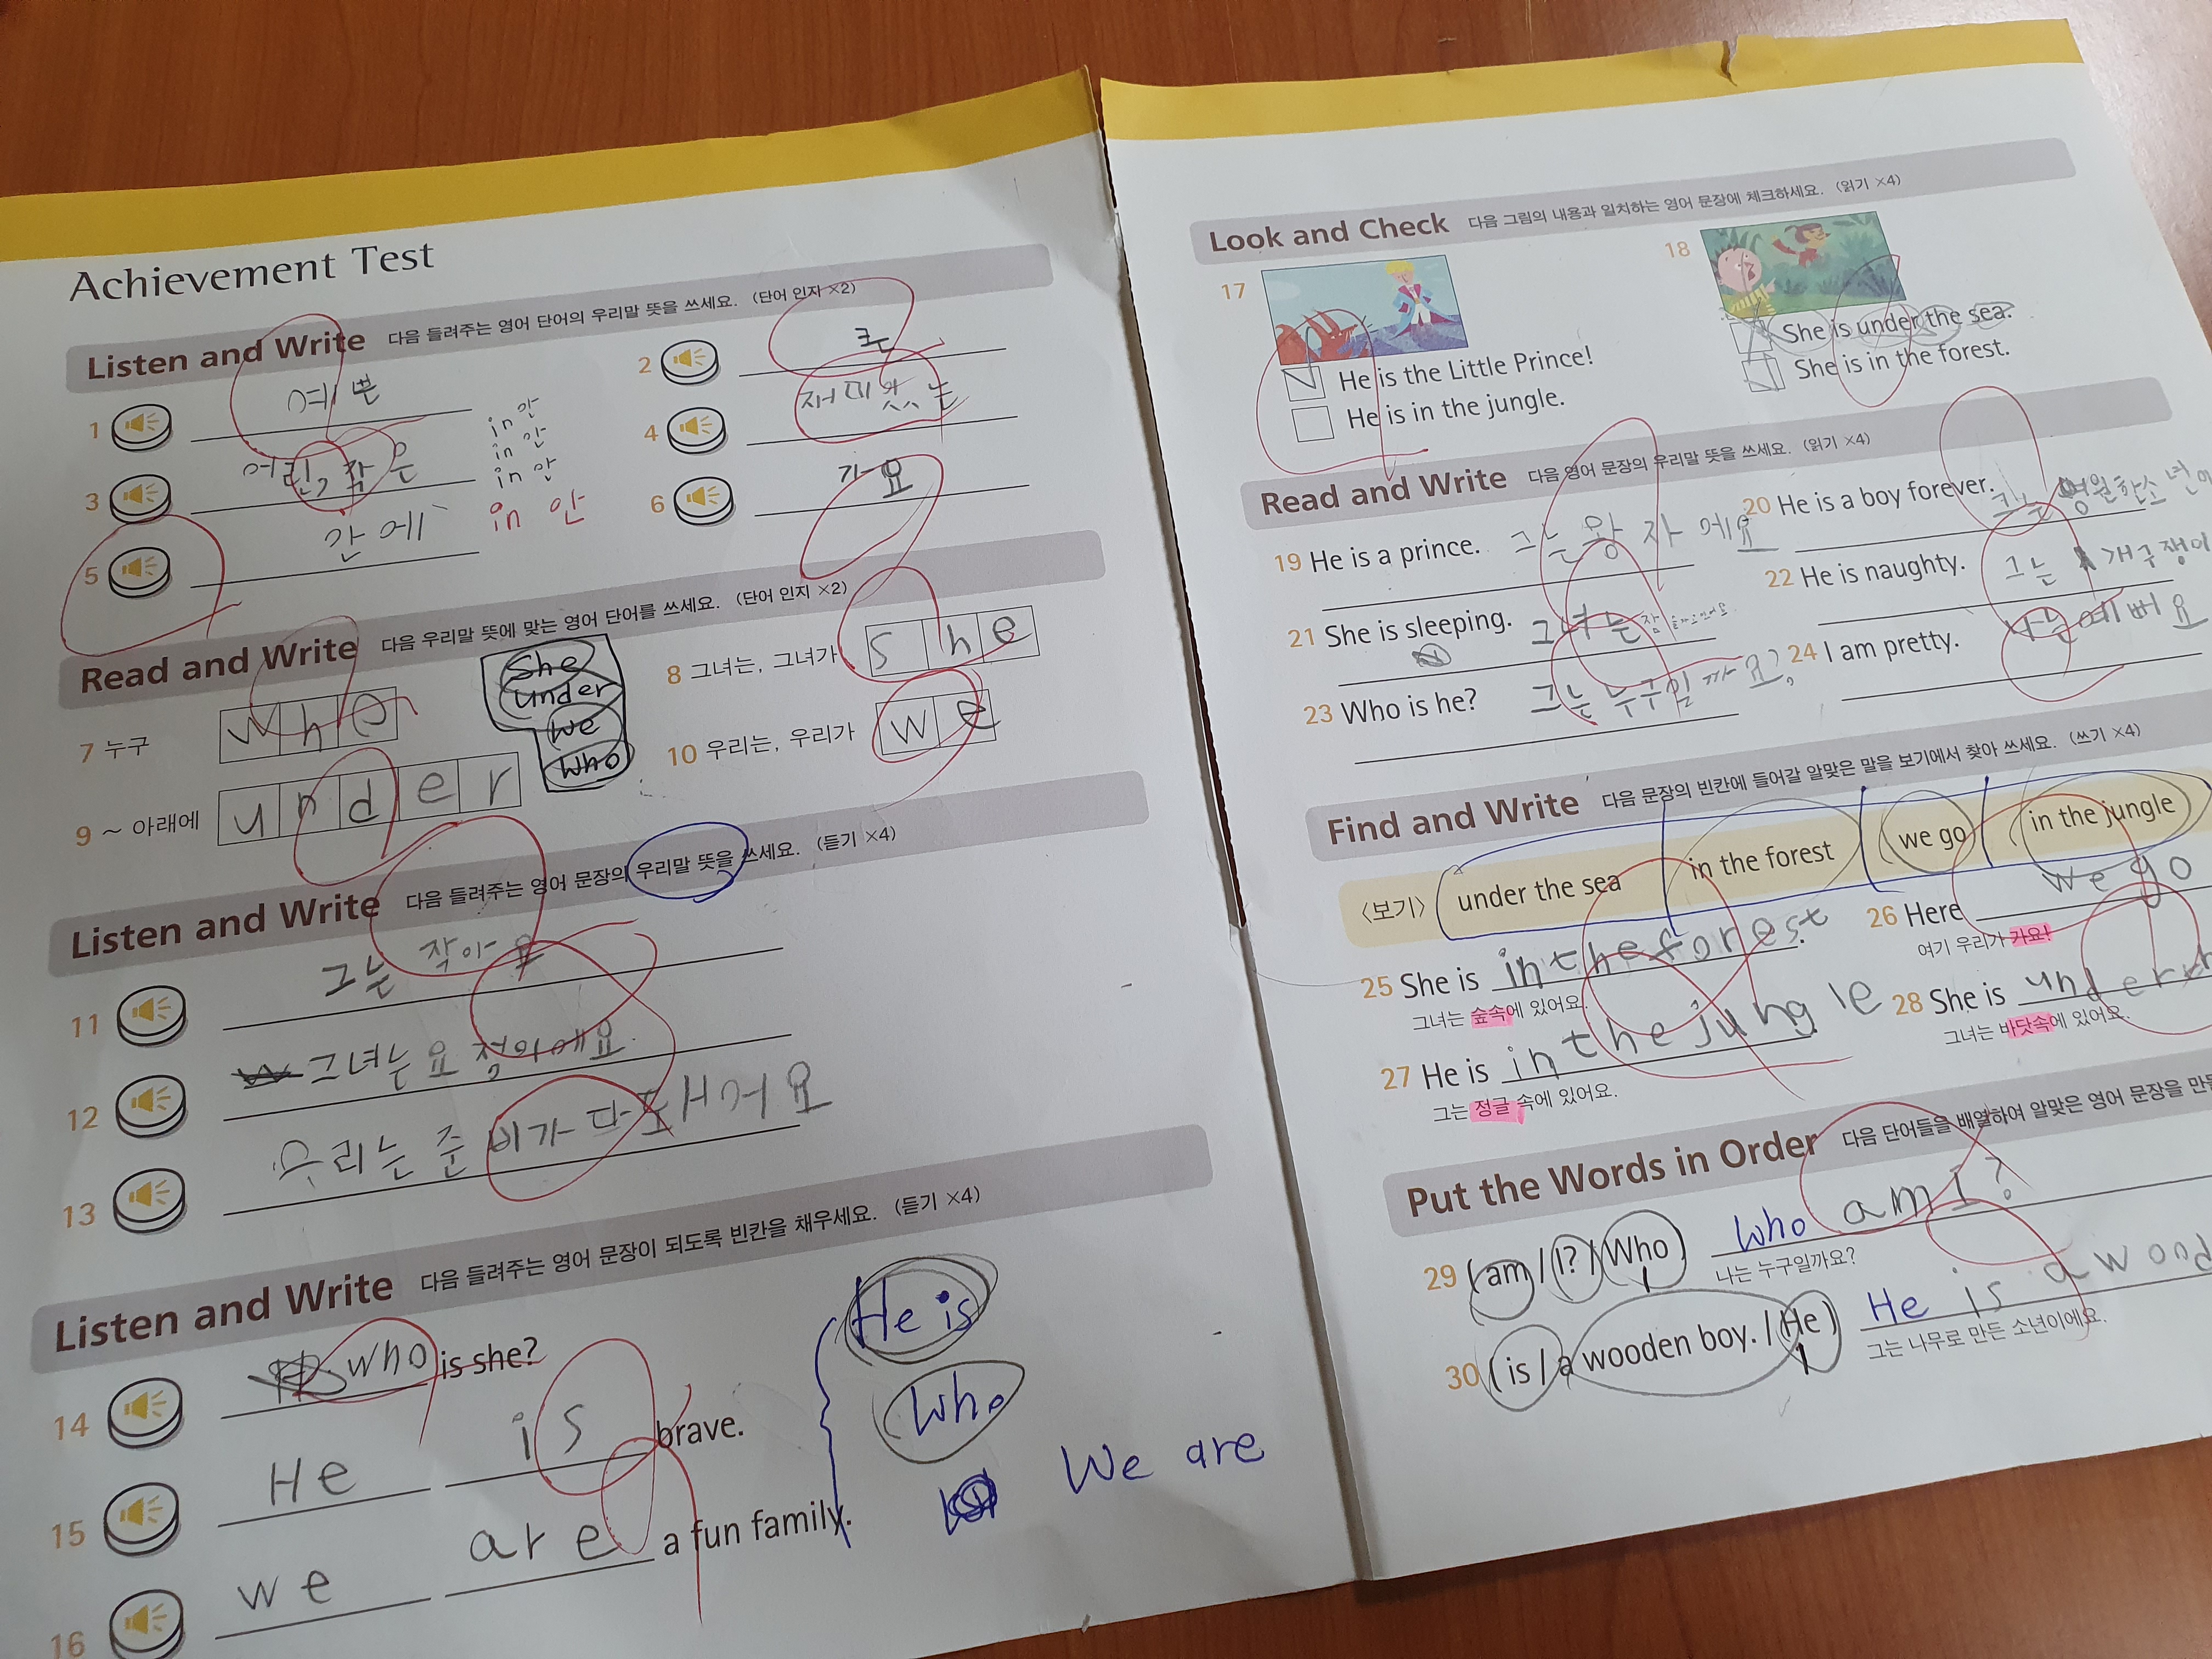 Achievement Test
Listen and Write 다음 들려주는 영어 단어의 우리말 뜻을 쓰세요. (단어 인지 ×2)
1 예쁜
2 큰
3 어린, 작은
4 재미있는
in 안
in 안
in 안
in 안
5 간에
6 가요
Read and Write 다음 우리말 뜻에 맞는 영어 단어를 쓰세요. (단어 인지 ×2)
7 누구 whe
She
under
we
who
8 그녀는, 그녀가 she
9 ~ 아래에 under
10 우리는, 우리가 we
Listen and Write 다음 들려주는 영어 문장의 우리말 뜻을 쓰세요. (듣기 ×4)
11 그는 작아요
12 그녀는 요정이에요
13 우리는 준비가 다 돼어요
Listen and Write 다음 들려주는 영어 문장이 되도록 빈칸을 채우세요. (듣기 ×4)
14 who is she?
15 He is brave.
16 we are a fun family.
He is
Who
We are
Look and Check 다음 그림의 내용과 일치하는 영어 문장에 체크하세요. (읽기 ×4)
17
He is the Little Prince!
He is in the jungle.
18
She is under the sea.
She is in the forest.
Read and Write 다음 영어 문장의 우리말 뜻을 쓰세요. (읽기 ×4)
19 He is a prince. 그는 왕자에요
20 He is a boy forever. 영원한 소년
21 She is sleeping. 그녀는 잠
22 He is naughty. 그는 개구쟁이
23 Who is he? 그는 누구일까요?
24 I am pretty. 나는 예뻐요
Find and Write 다음 문장의 빈칸에 들어갈 알맞은 말을 보기에서 찾아 쓰세요. (쓰기 ×4)
〈보기〉 under the sea in the forest we go in the jungle
25 She is in the forest
그녀는 숲속에 있어요.
26 Here we go
여기 우리가 가요!
27 He is in the jungle
그는 정글 속에 있어요.
28 She is under
그녀는 바닷속에 있어요.
Put the Words in Order 다음 단어들을 배열하여 알맞은 영어 문장을 만들
29 ( am / I? / Who ) Who am I?
나는 누구일까요?
30 ( is / a wooden boy. / He ) He is a wood
그는 나무로 만든 소년이에요.